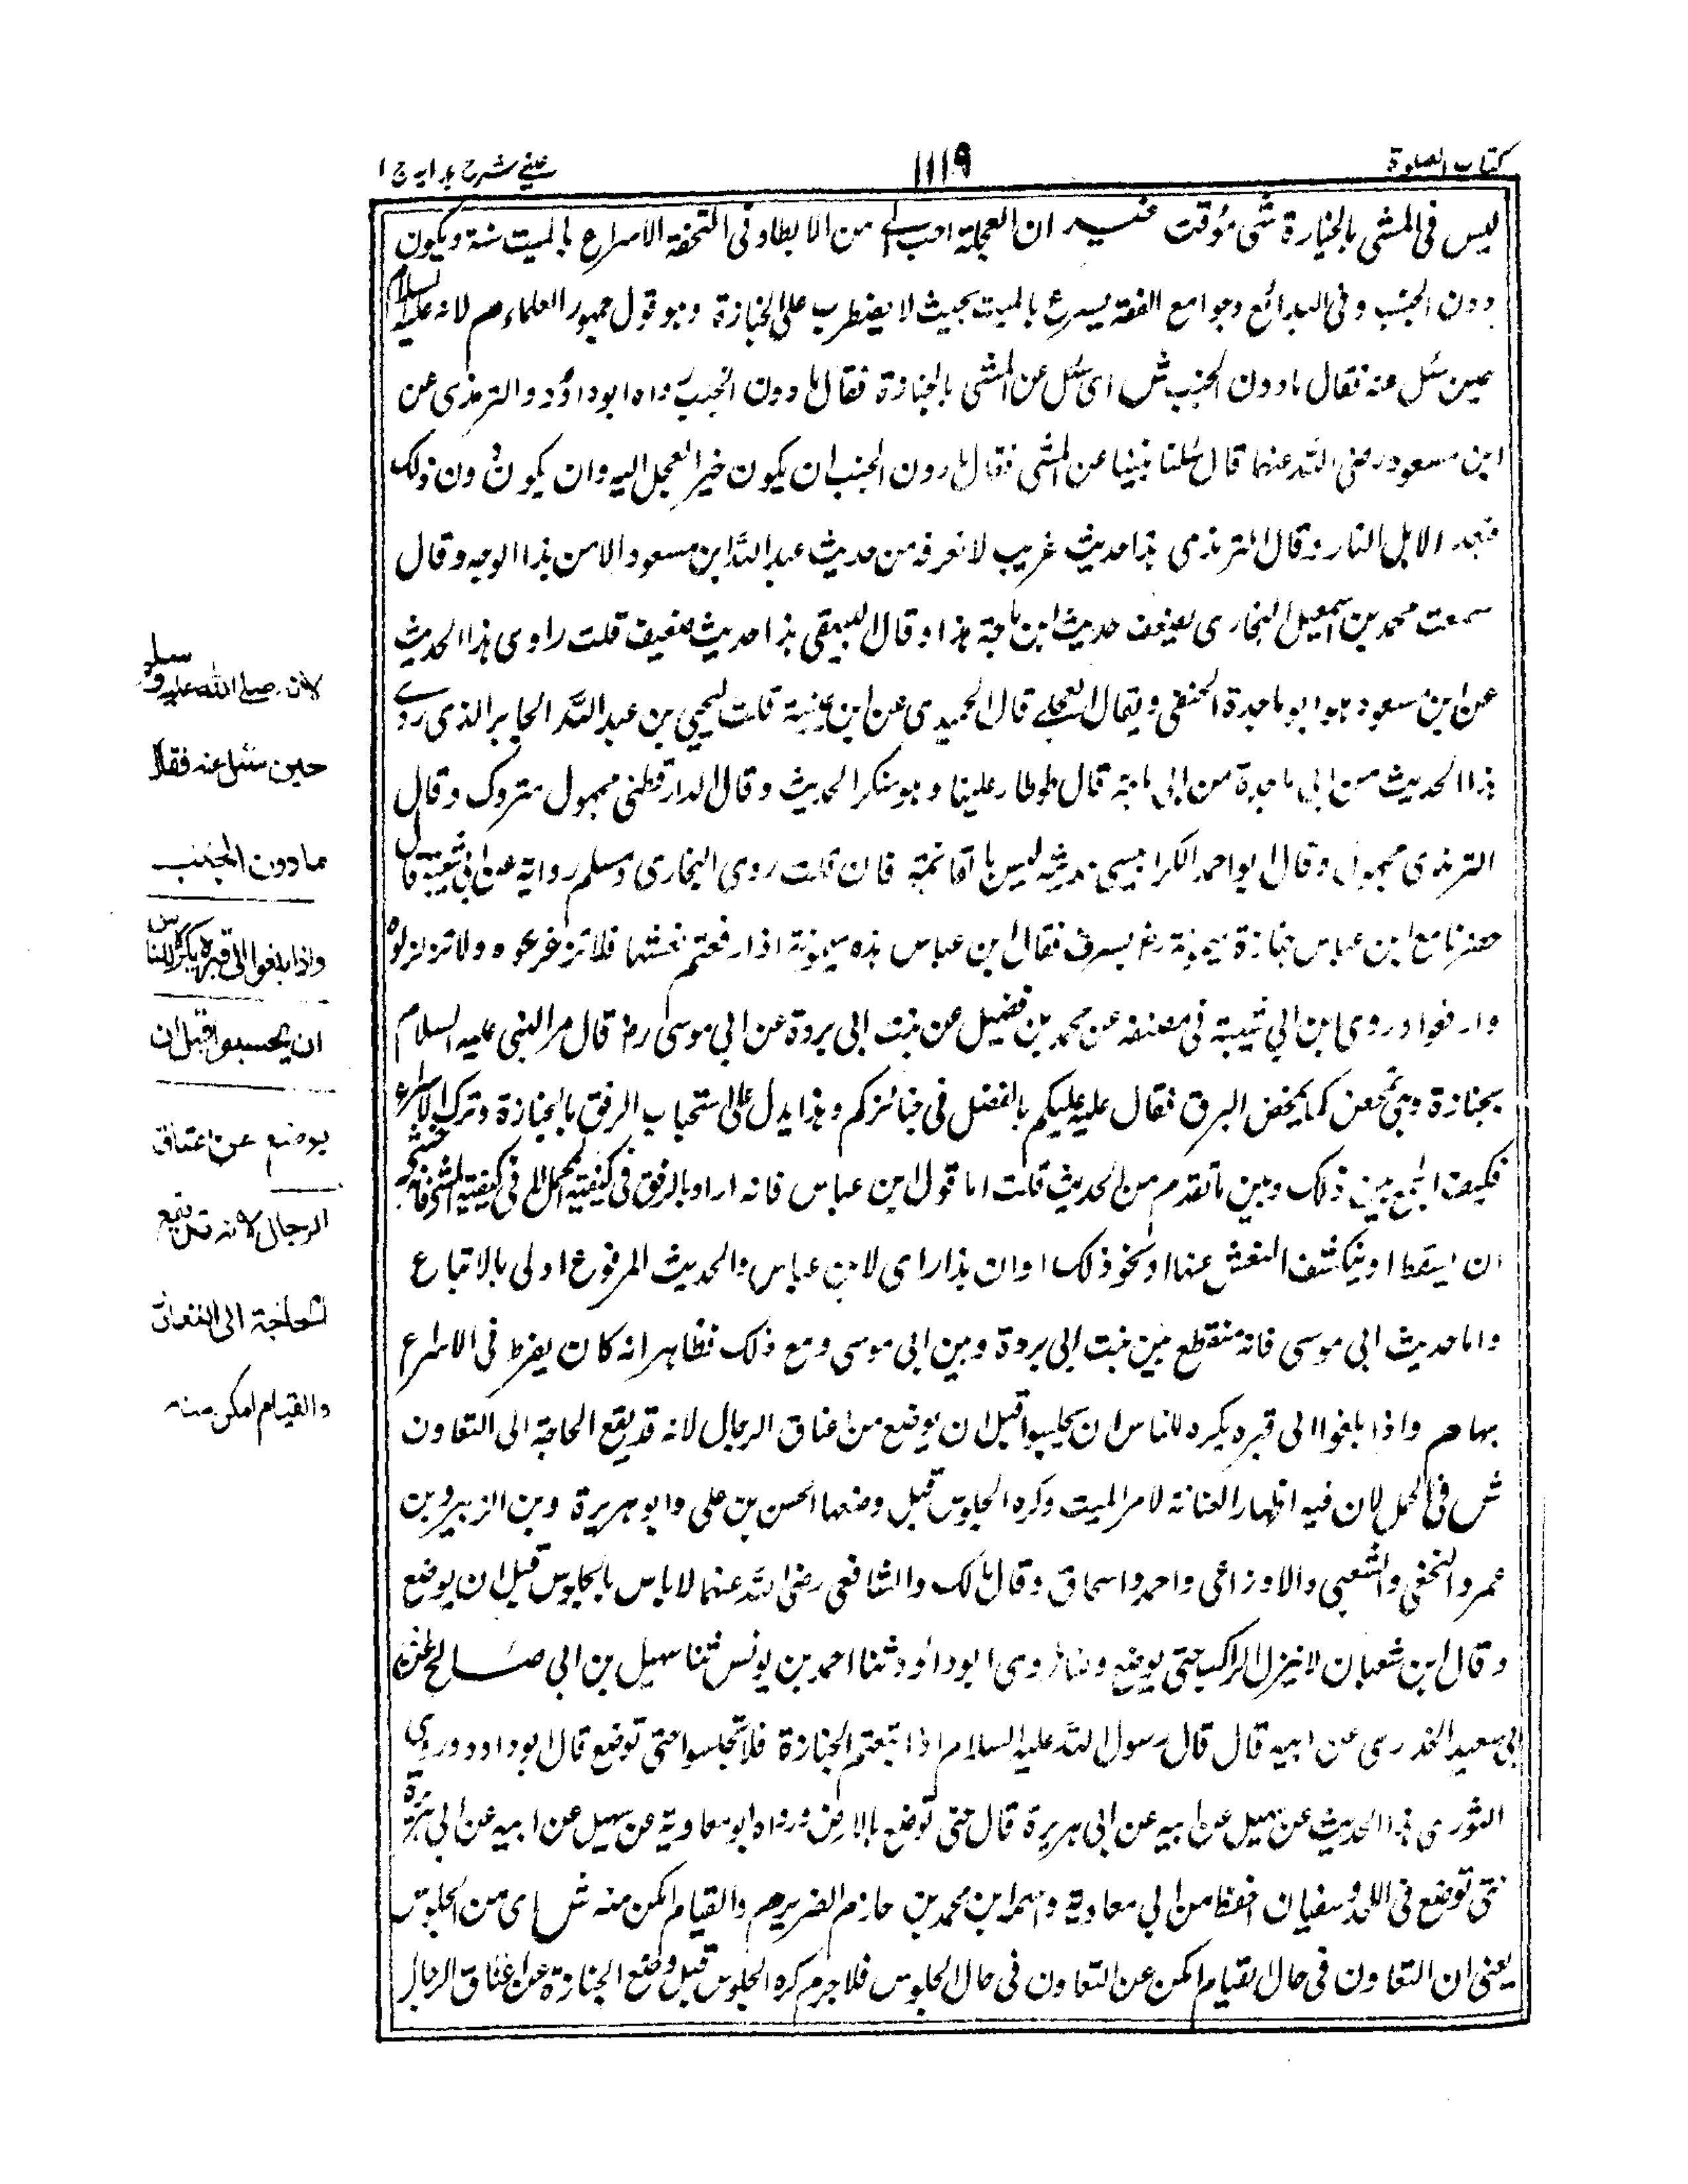 كتاب الصلوة
١١١٩
عيني شرح هدايه ج ١
ليس في المشي بالجنازة شي مؤقت غير ان العجلة احب الي من الابطاء وفي التحفة الاسراع بالميت سنة ويكون
دون الخبب وفي البدائع وجوامع الفقه يسرع بالميت بحيث لا يضطرب على الجنازة وهو قول جمهور العلماء م لانه عليه السلام
حين سئل عنه فقال ما دون الخبب ش اى سئل عن المشي بالجنازة فقال ما دون الخبب رواه ابوداؤد والترمذي عن
ابن مسعود رضي الله عنهما قال سئلنا نبينا عن المشي فقال ما دون الخبب ان يكون خيرا تعجل اليه وان يكون دون ذلك
فبعد الاهل النار وقال الترمذي هذا حديث غريب لا نعرفه من حديث عبد الله ابن مسعود الا من هذا الوجه وقال
سمعت محمد بن اسمعيل البخاري يضعف حديث ابن ماجة هذا وقال البيهقي هذا حديث ضعيف قلت راوى هذا الحديث
عن ابن مسعود هو ابو ماجدة الحنفي ويقال العجلي قال الحميدي عن ابن عيينة قلت ليحيى بن عبد الله الجابر الذي روى
هذا الحديث من ابي ماجدة من ابي ماجة قال طار علينا وهو منكر الحديث وقال الدارقطني مجهول متروك وقال
الترمذي مجهول وقال ابو احمد الكرابيسي حديثه ليس بالقائمة فان قلت روى البخاري ومسلم رواية عن ابي شيبة قال
حضرنا مع ابن عباس جنازة ميمونة رض بسرف فقال ابن عباس هذه ميمونة اذا رفعتم نعشها فلا تزعزعوه ولا تزلزلوه
وارفقوا وروى ابن ابي شيبة في مصنفه عن محمد بن فضيل عن بنت ابي بردة عن ابي موسى رض قال مر النبي عليه السلام
بجنازة وهي تمخض كما يمخض البرق فقال عليه عليكم بالقصد في جنائزكم وهذا يدل على استحباب الرفق بالجنازة وترك الاسراع
فكيف الجمع بين ذلك وبين ما تقدم من الحديث قلت اما قول ابن عباس فانه اراد بالرفق في كيفية الحمل لا في كيفية المشي فانه خشي
ان يسقط او ينكشف النعش عنها او نحو ذلك او ان هذا راى لابن عباس والحديث المرفوع اولى بالاتباع
واما حديث ابي موسى فانه منقطع بين بنت ابي بردة وبين ابي موسى ومع ذلك فظاهر انه كان يفرط في الاسراع
بها م واذا بلغوا الى قبره يكره للناس ان يجلسوا قبل ان يوضع من اعناق الرجال لانه قد يقع الحاجة الى التعاون
ش في الحمل لان فيه اظهار العناية لامر الميت وكره الجلوس قبل وضعها الحسن بن علي وابو هريرة وبن الزبير وبن
عمر والنخعي والشعبي والاوزاعي واحمد واسحاق وقال مالك والشافعي رضي الله عنهما لا باس بالجلوس قبل ان يوضع
وقال ابن شعبان لا ينزل الراكب حتى يوضع ولنا ما روى ابو داؤد ثنا احمد بن يونس ثنا سهيل بن ابي صالح عن
ابي سعيد الخدري عن ابيه قال قال رسول الله عليه السلام اذا تبعتم الجنازة فلا تجلسوا حتى توضع قال ابو داود وروى
الثوري هذا الحديث عن سهيل عن ابيه عن ابي هريرة قال حتى توضع بالارض ورواه ابو معاوية عن سهيل عن ابيه عن ابي هريرة
حتى توضع في اللحد وسفيان احفظ من ابي معاوية واسمه ابن محمد بن حازم الضرير م والقيام امكن منه ش اى من الجلوس
يعني ان التعاون في حال القيام امكن عن التعاون في حال الجلوس فلا جرم كره الجلوس قبل وضع الجنازة عن اعناق الرجال
لانه صلى الله عليه وسلم
حين سئل عنه فقال
ما دون الخبب
واذا بلغوا الى قبره يكره للناس
ان يجلسوا قبل ان
يوضع عن اعناق
الرجال لانه قد تقع
الحاجة الى التعاون
والقيام امكن منه